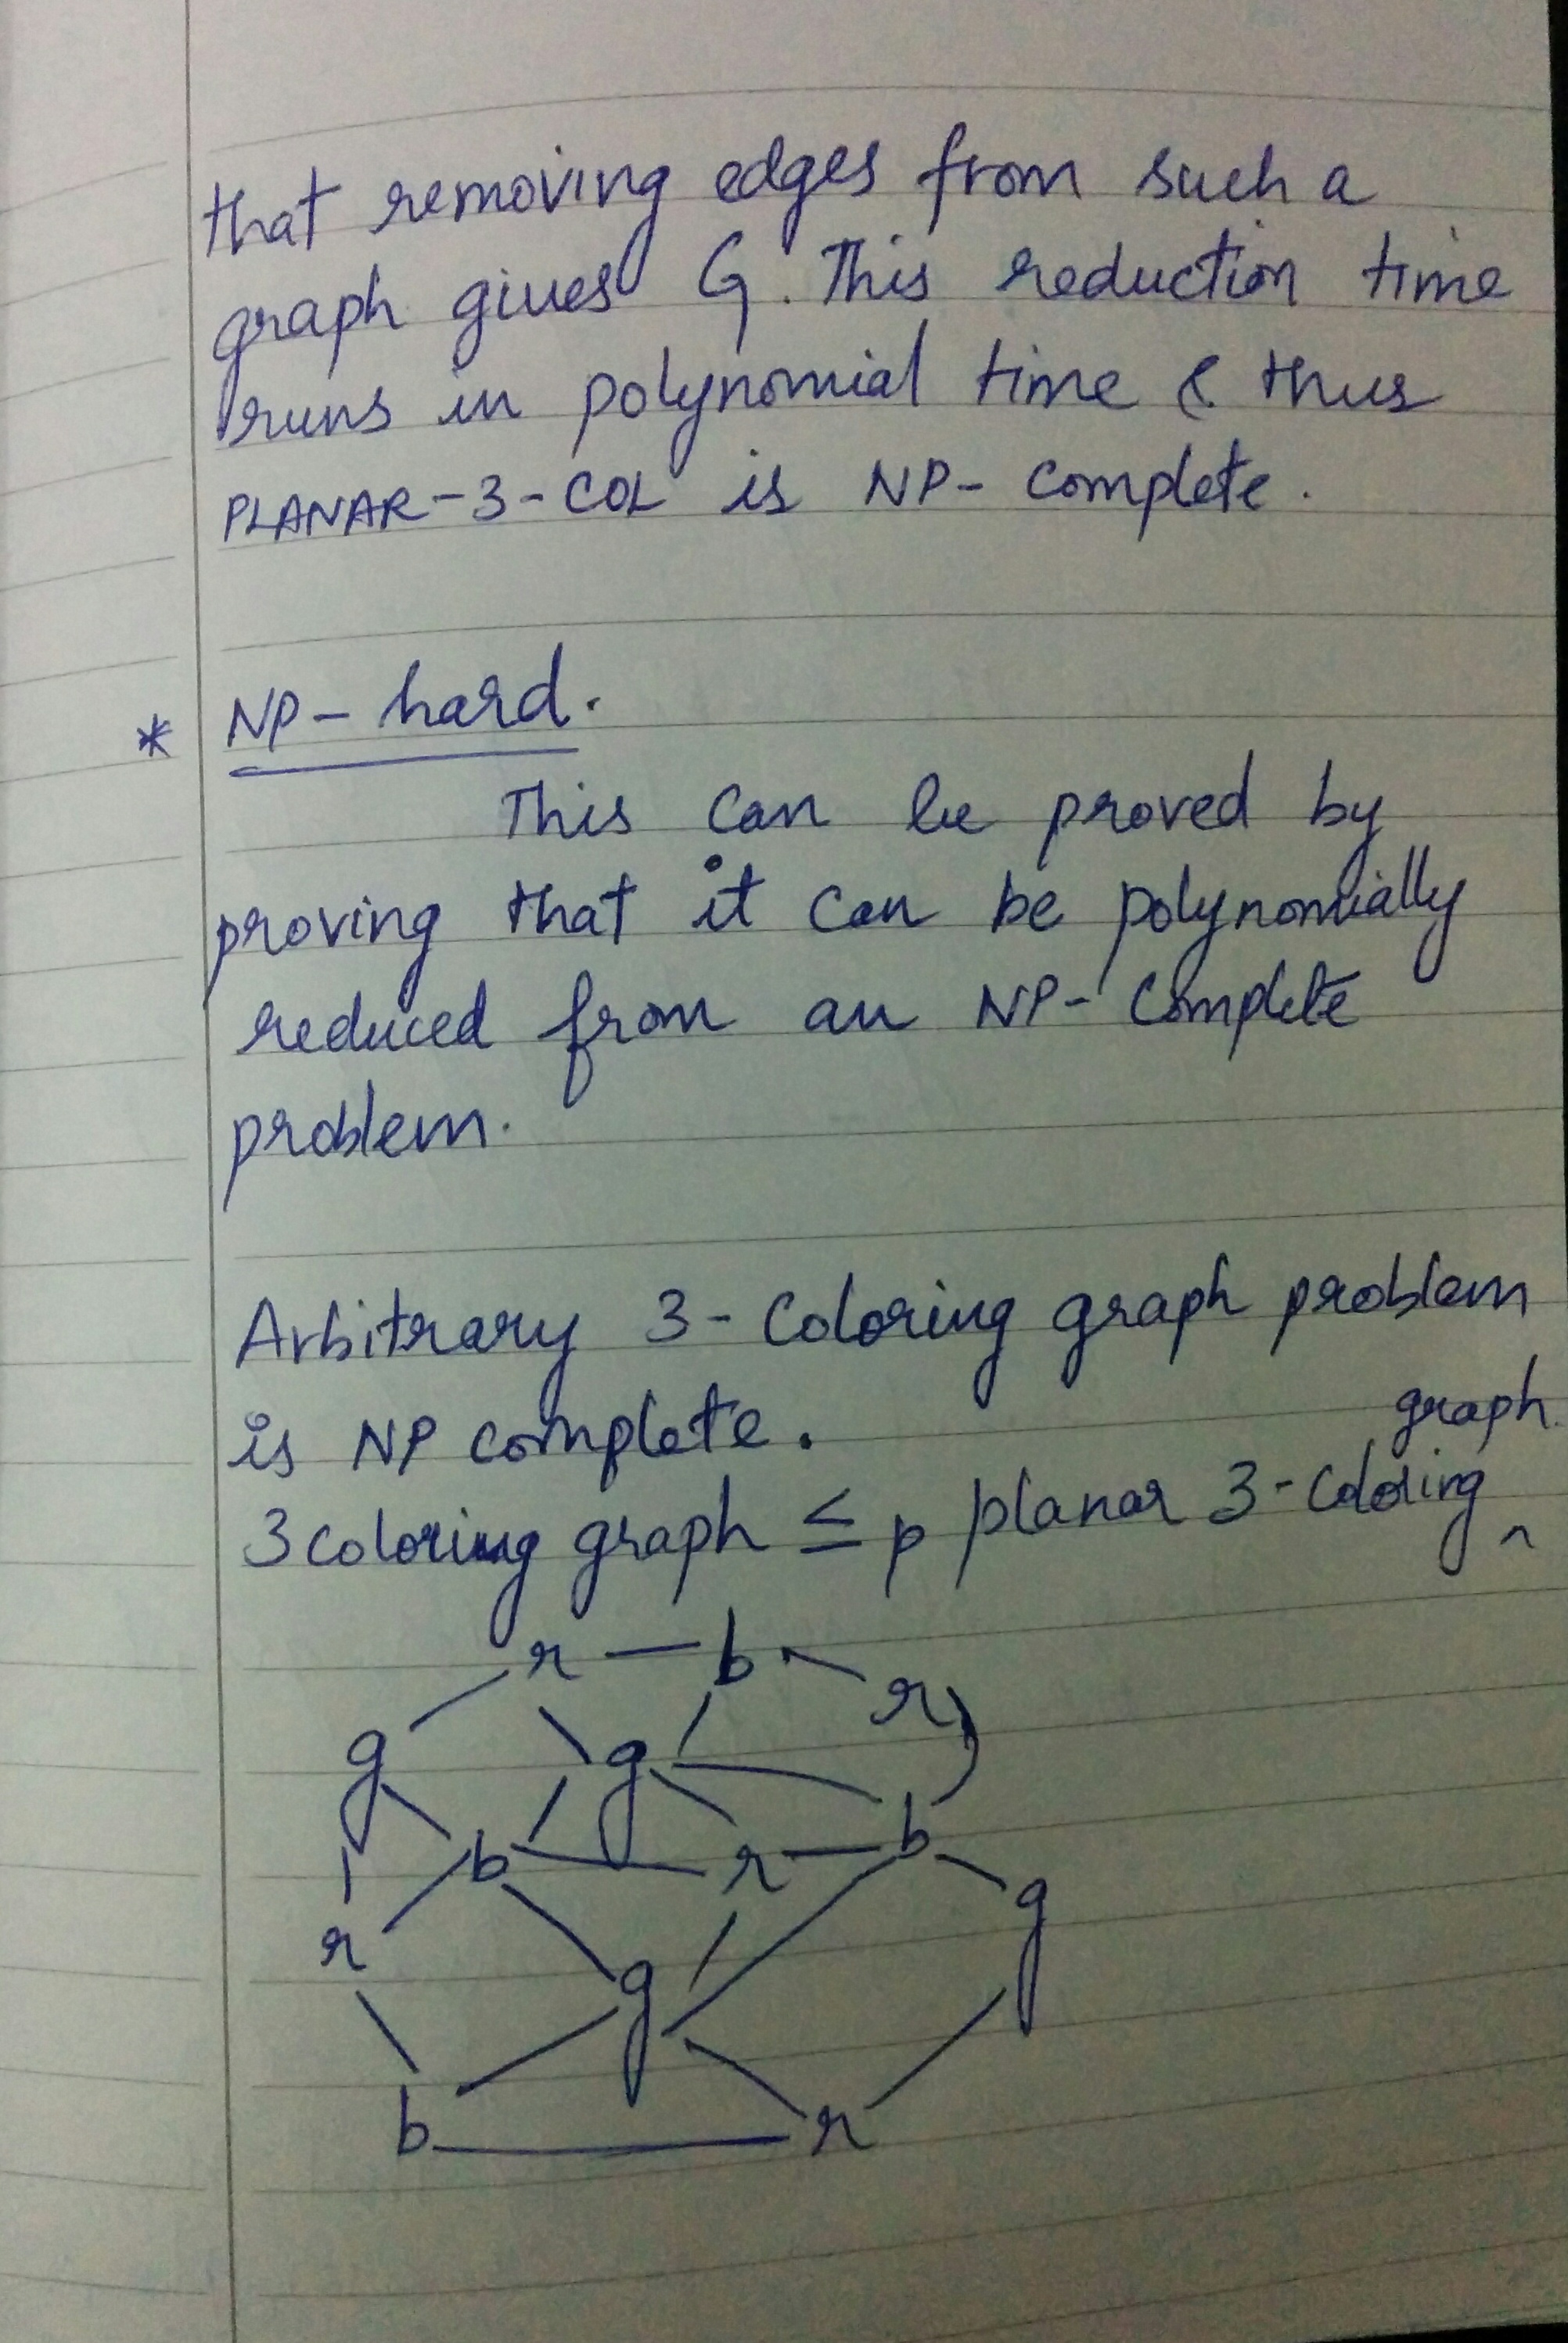 that removing edges from such a
graph gives G. This reduction time
runs in polynomial time & thus
PLANAR-3-COL is NP-complete.
* NP-hard.
This can be proved by
proving that it can be polynomially
reduced from an NP-Complete
problem.
Arbitrary 3-Coloring graph problem
is NP complete.
graph
3 coloring graph ≤ p planar 3-coloring ^
r b
r
g g
b
b r
g
r
g
b r